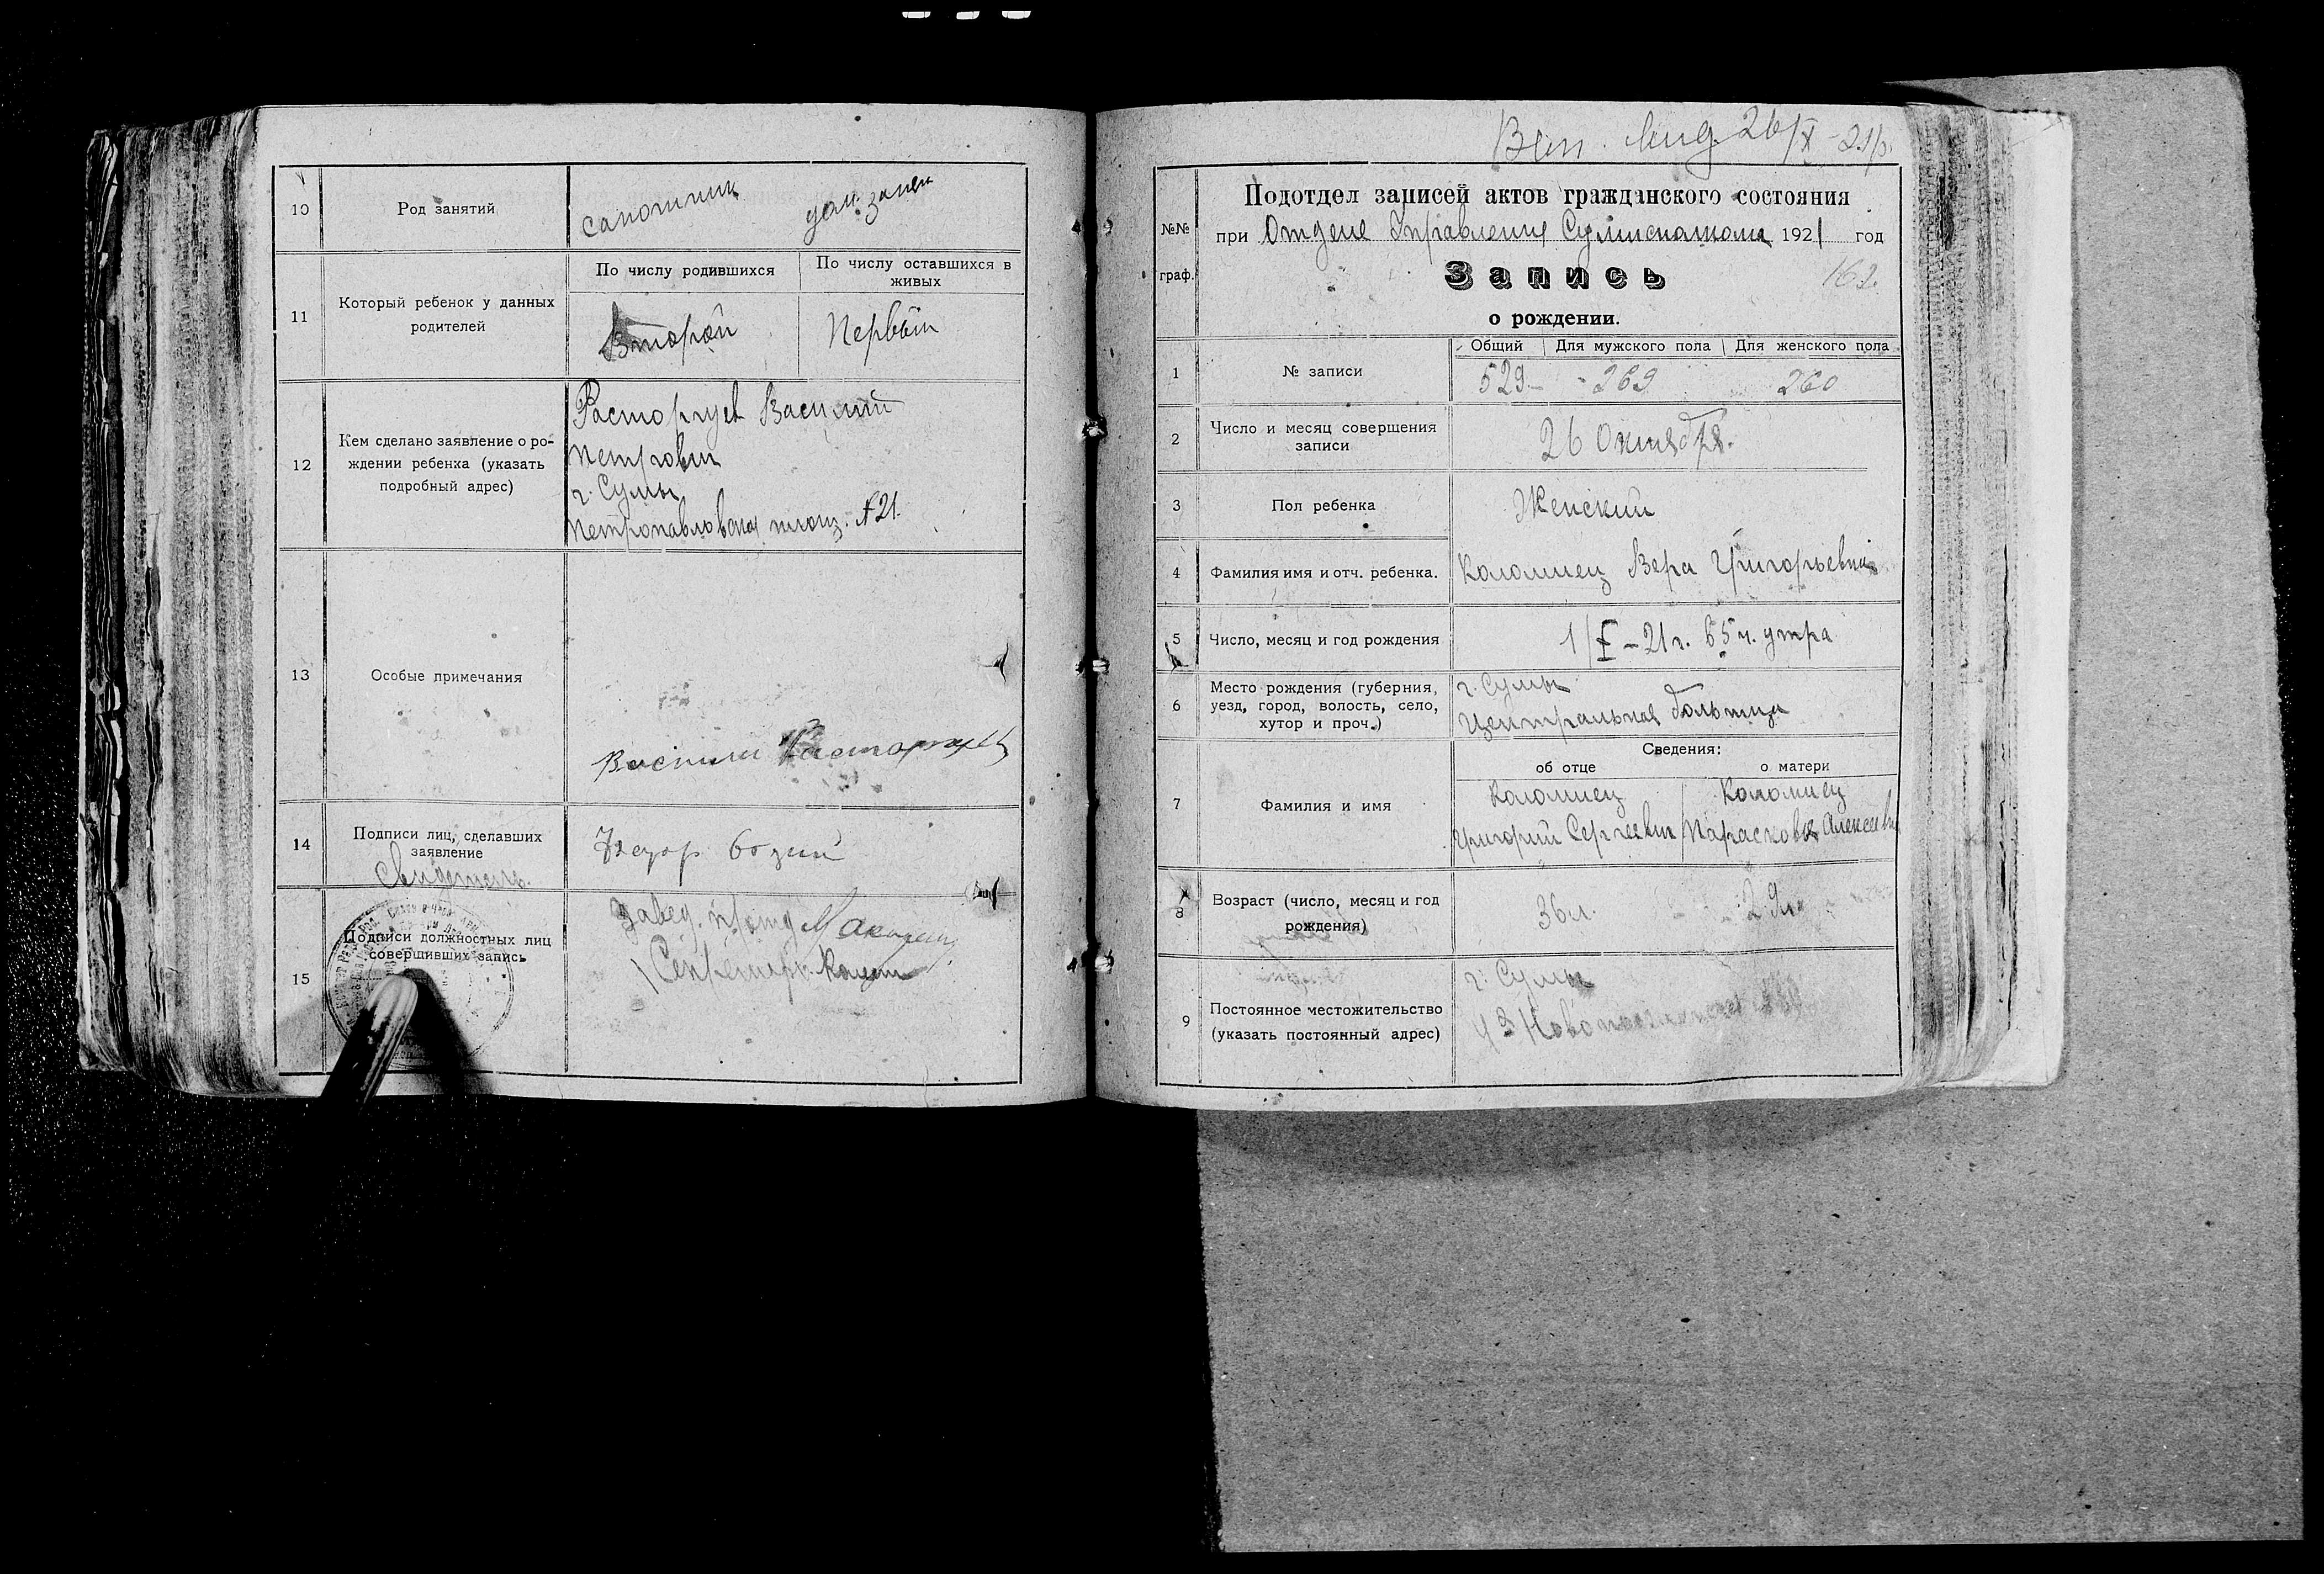 10
Род занятий
сапожник
дом. занят
11
Который ребенок у данных
родителей
По числу родившихся
По числу оставшихся в
живых
Второй
Первый
12
Кем сделано заявление о ро-
ждении ребенка (указать
подробный адрес)
Расторгуев Василий
Петрович
г. Сумы
Петропавловская площ. №21.
13
Особые примечания
Василий Расторгуев
14
Подписи лиц, сделавших
заявление
Свидетель.
15
Подписи должностных лиц
совершивших запись
Завед.
Секретарь
Вып. 26/X-21г.
Подотдел записей актов гражданского состояния
№№
граф.
при Отделе Управления 1921 год
Запись
162.
о рождении.
1
№ записи
Общий
Для мужского пола
Для женского пола
529 - 269 260
2
Число и месяц совершения
записи
26 Октября.
3
Пол ребенка
Женский
4
Фамилия имя и отч. ребенка.
Коломиец Вера Григорьевна
5
Число, месяц и год рождения
1/X - 21 г. в 5 ч. утра
6
Место рождения (губерния,
уезд, город, волость, село,
хутор и проч.)
г. Сумы
Центральная больница
7
Фамилия и имя
Сведения:
об отце
о матери
Коломиец
Григорий Сергеевич
Коломиец
Парасковья Алексеевна
8
Возраст (число, месяц и год
рождения)
36 л.
9
Постоянное местожительство
(указать постоянный адрес)
г. Сумы